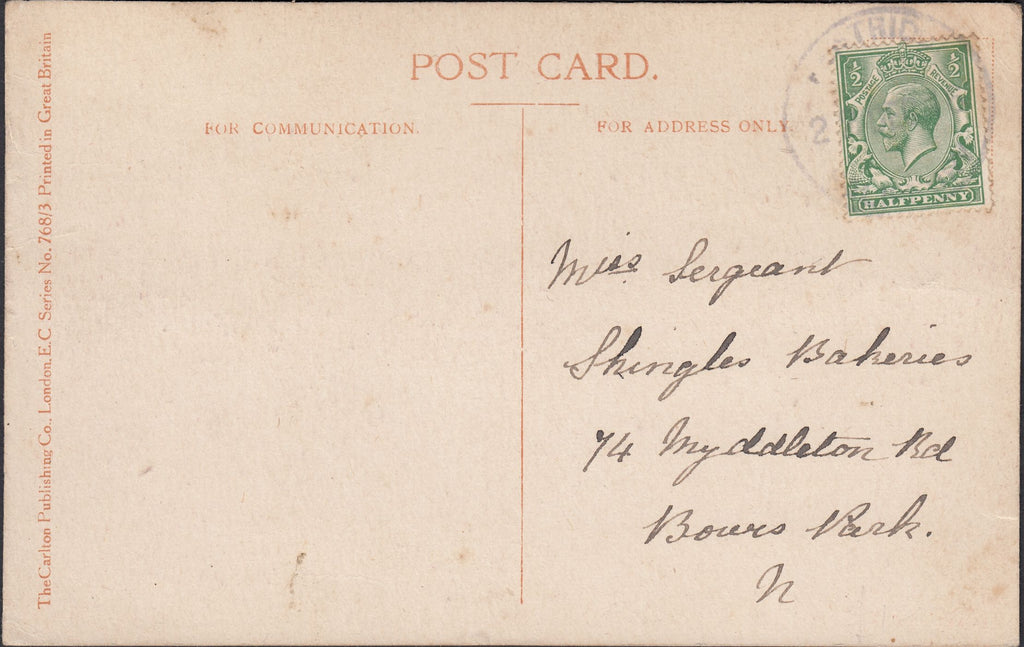 POST CARD.
FOR COMMUNICATION.
FOR ADDRESS ONLY.
½ ½
POSTAGE REVENUE
HALFPENNY
2
Miss Sergeant
Shingles Bakeries
74 Myddleton Rd
Bowes Park.
N
The Carlton Publishing Co., London, E.C Series No. 768/3 Printed in Great Britain